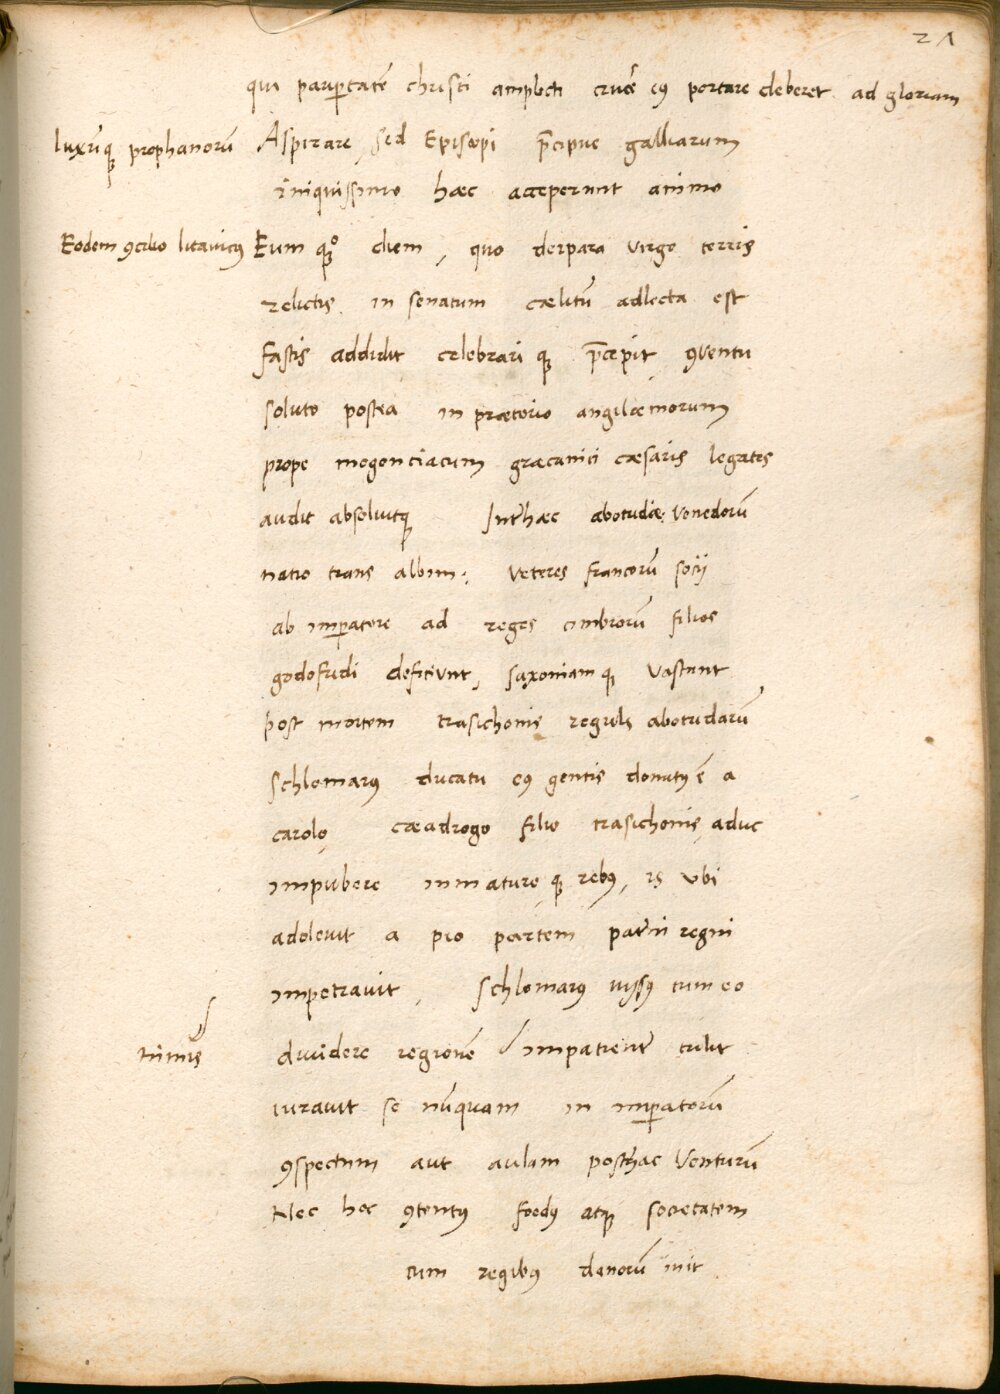 21
qui paup̄tatē christi amplecti crucē eꝰ portare deberet ad gloriam
luxūqꝫ prophanorū Aspirare, sed Episcopi p̄cipue galliarum
iniquissimo hæc acceperunt animo
Eodem ꝯcilio litauicꝰ Eum qꝫº diem, quo deipara virgo terris
relictis in senatum cælitū adlecta est
fastis addidit celebrari qꝫ p̄cæpit ꝯventu
soluto postea in prætorio angilæmorum
prope mogonciacum græcanici cæsaris legatos
audit absoluitqꝫ Int̄hæc abotudiæ venedorū
natio trans albim: veteres francorū socij
ab imp̄atore ad reges cimbrorū filios
godofridi deficiunt, saxoniam qꝫ vastant
post mortem trasichonis reguli abotudarū
schlomarꝰ ducatu eꝰ gentis donatꝰ ē a
carolo, cæadrogo filio trasichonis, aduc
impubere inmature qꝫ rebꝰ, is vbi
adolevit a pio partem pat̄ni regni
impetravit, schlomarꝰ iussꝰ cum eo
nimis dividere regionē impatient̄ tulit
iuravit se nūquam in imp̄atorū
ꝯspectum aut aulam posthac venturū
Nec hoc ꝯtentꝰ foedꝰ atqꝫ societatem
cum regibꝰ danorū init